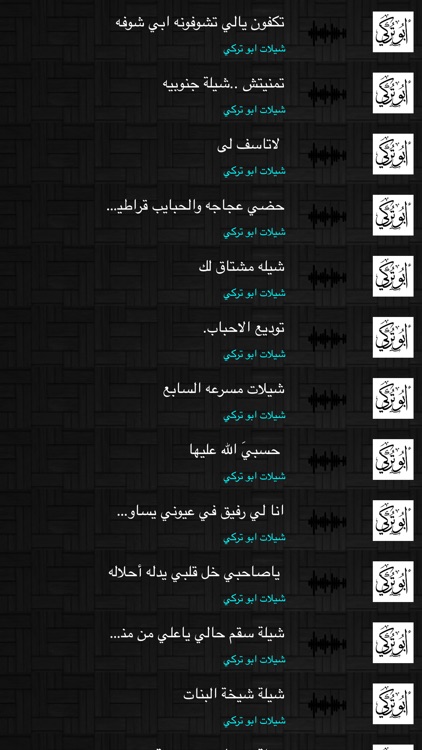 تكفون يالي تشوفونه ابي شوفه
شيلات ابو تركي
ابو تركي
تمنيتش ..شيلة جنوبيه
شيلات ابو تركي
ابو تركي
لاتاسف لى
شيلات ابو تركي
ابو تركي
حضي عجاجه والحبايب قراطيـ...
شيلات ابو تركي
ابو تركي
شيله مشتاق لك
شيلات ابو تركي
ابو تركي
توديع الاحباب.
شيلات ابو تركي
ابو تركي
شيلات مسرعه السابع
شيلات ابو تركي
ابو تركي
حسبيَ الله عليها
شيلات ابو تركي
ابو تركي
انا لي رفيق في عيوني يساو...
شيلات ابو تركي
ابو تركي
ياصاحبي خل قلبي يدله أحلاله
شيلات ابو تركي
ابو تركي
شيلة سقم حالي ياعلي من منـ...
شيلات ابو تركي
ابو تركي
شيلة شيخة البنات
شيلات ابو تركي
ابو تركي